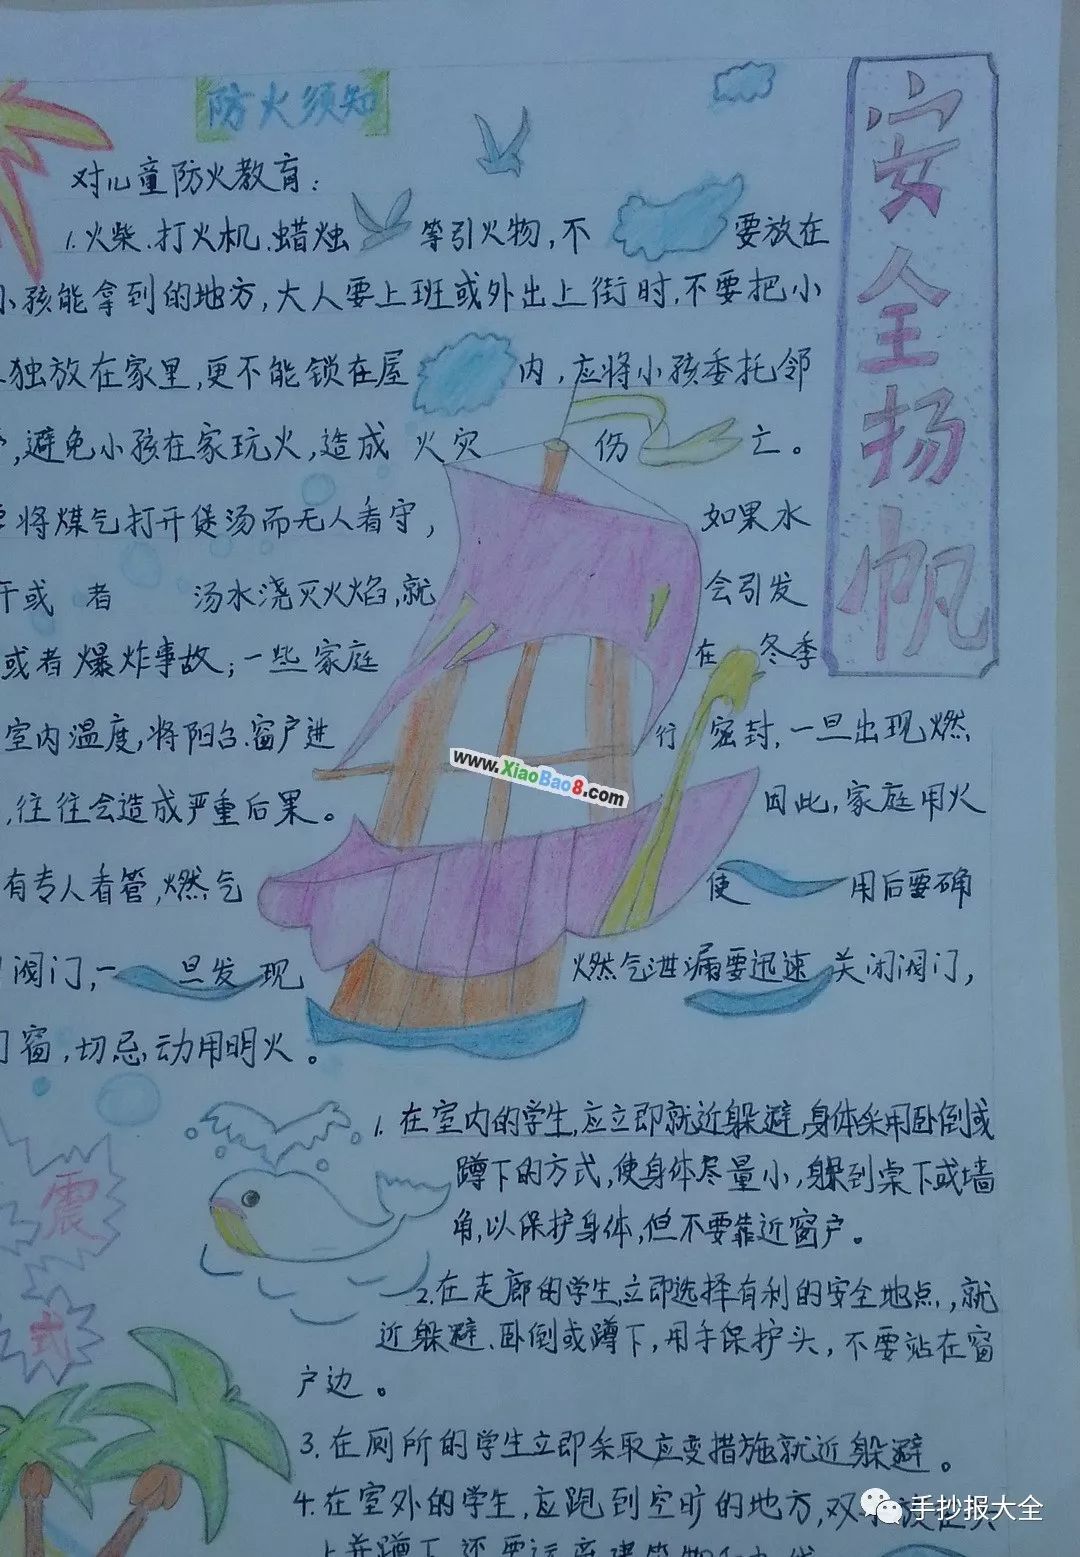 防火须知
安全扬帆
对儿童防火教育:
1.火柴.打火机.蜡烛等引火物,不要放在
小孩能拿到的地方,大人要上班或外出上街时,不要把小
独放在家里,更不能锁在屋内,应将小孩委托邻
,避免小孩在家玩火,造成火灾伤亡。
将煤气打开煲汤而无人看守,如果水
开或者汤水浇灭火焰,就会引发
或者爆炸事故;一些家庭在冬季
室内温度,将阳台.窗户进行密封,一旦出现燃
,往往会造成严重后果。因此,家庭用火
有专人看管,燃气使用后要确
阀门,一旦发现燃气泄漏要迅速关闭阀门,
门窗,切忌动用明火。
www.XiaoBao8.com
震
式
1.在室内的学生,应立即就近躲避,身体采用卧倒或
蹲下的方式,使身体尽量小,躲到桌下或墙
角,以保护身体,但不要靠近窗户。
2.在走廊的学生,立即选择有利的安全地点,就
近躲避.卧倒或蹲下,用手保护头,不要站在窗
户边。
3.在厕所的学生立即采取应变措施就近躲避。
4.在室外的学生,应跑到空旷的地方,双
手抄报大全